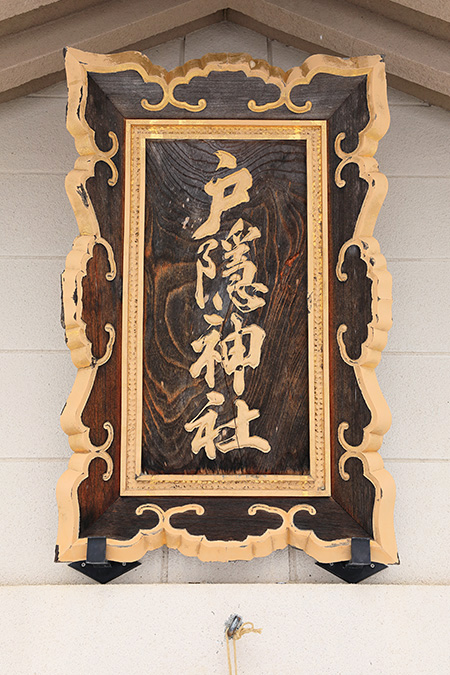 戸隠神社